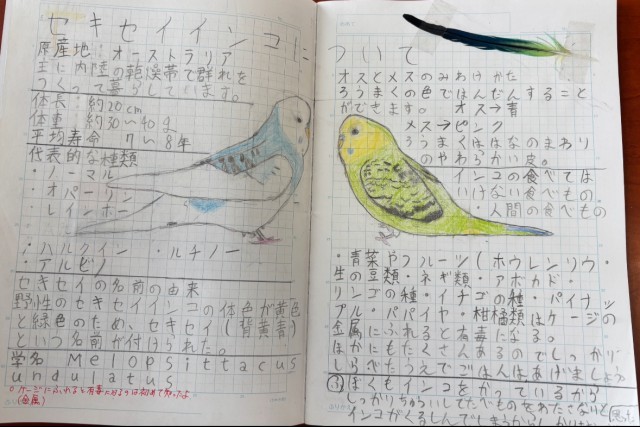 セキセイインコに
原産地:オーストラリア
主に内陸の乾燥帯で群れを
つくって暮らしています。
体長:約20cm
体重:約30〜40g
平均寿命 7〜8年
代表的な種類
・ノーマル
・オパーリン
・レインボー
・ハルクイン ・ルチノー
・アルビノ
セキセイの名前の由来
野性のセキセイインコの体色が黄色
と緑色のため、セキセイ(背黄青)
という名前が付けられた。
学名 Melopsittacus
undulatus
(金属)
ついて
オスとメスのみわけかた
ろうまくの色ではんだんすること
ができます。 オス→青
メス→ピンク
ろうまくははなのまわり
のやわらかい皮。
インコの食べては
いけない食べもの
・人間の食べもの
・青菜やフルーツ(ホウレンソウ・
生の豆類・ネギ類・アボカド・
リンゴの種・イチゴの種・パイナッ
プル・パパイヤ・柑橘類はケージの
金属にふれると有毒になる。
ほかにもたくさんあるのでしっかり
しらべたうえでごはんはあげましょう
ぼくもインコをかっているから
しっかりちゅういしてたべものをわたさないと
インコがくるしんでしまうから
思った